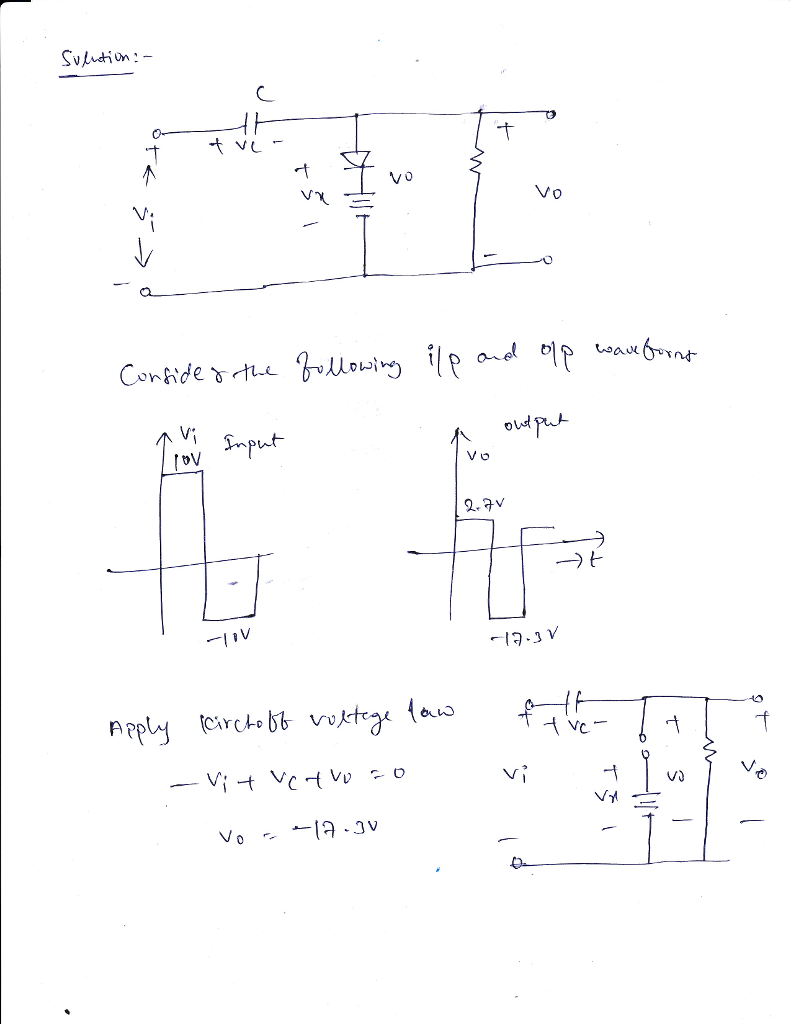 Solution:-
C
+ Vc -
+
Vi
-
+
Vx
-
Vo
+
Vo
-
Consider the following i/p and o/p waveforms
Vi
10V
Input
-10V
output
Vo
2.7V
→t
-17.3V
Apply Kirchoff voltage law
- Vi + Vc + Vo = 0
Vo = -17.3V
+ + Vc -
Vi
-
+
Vx
-
+
Vo
-
+
Vo
-